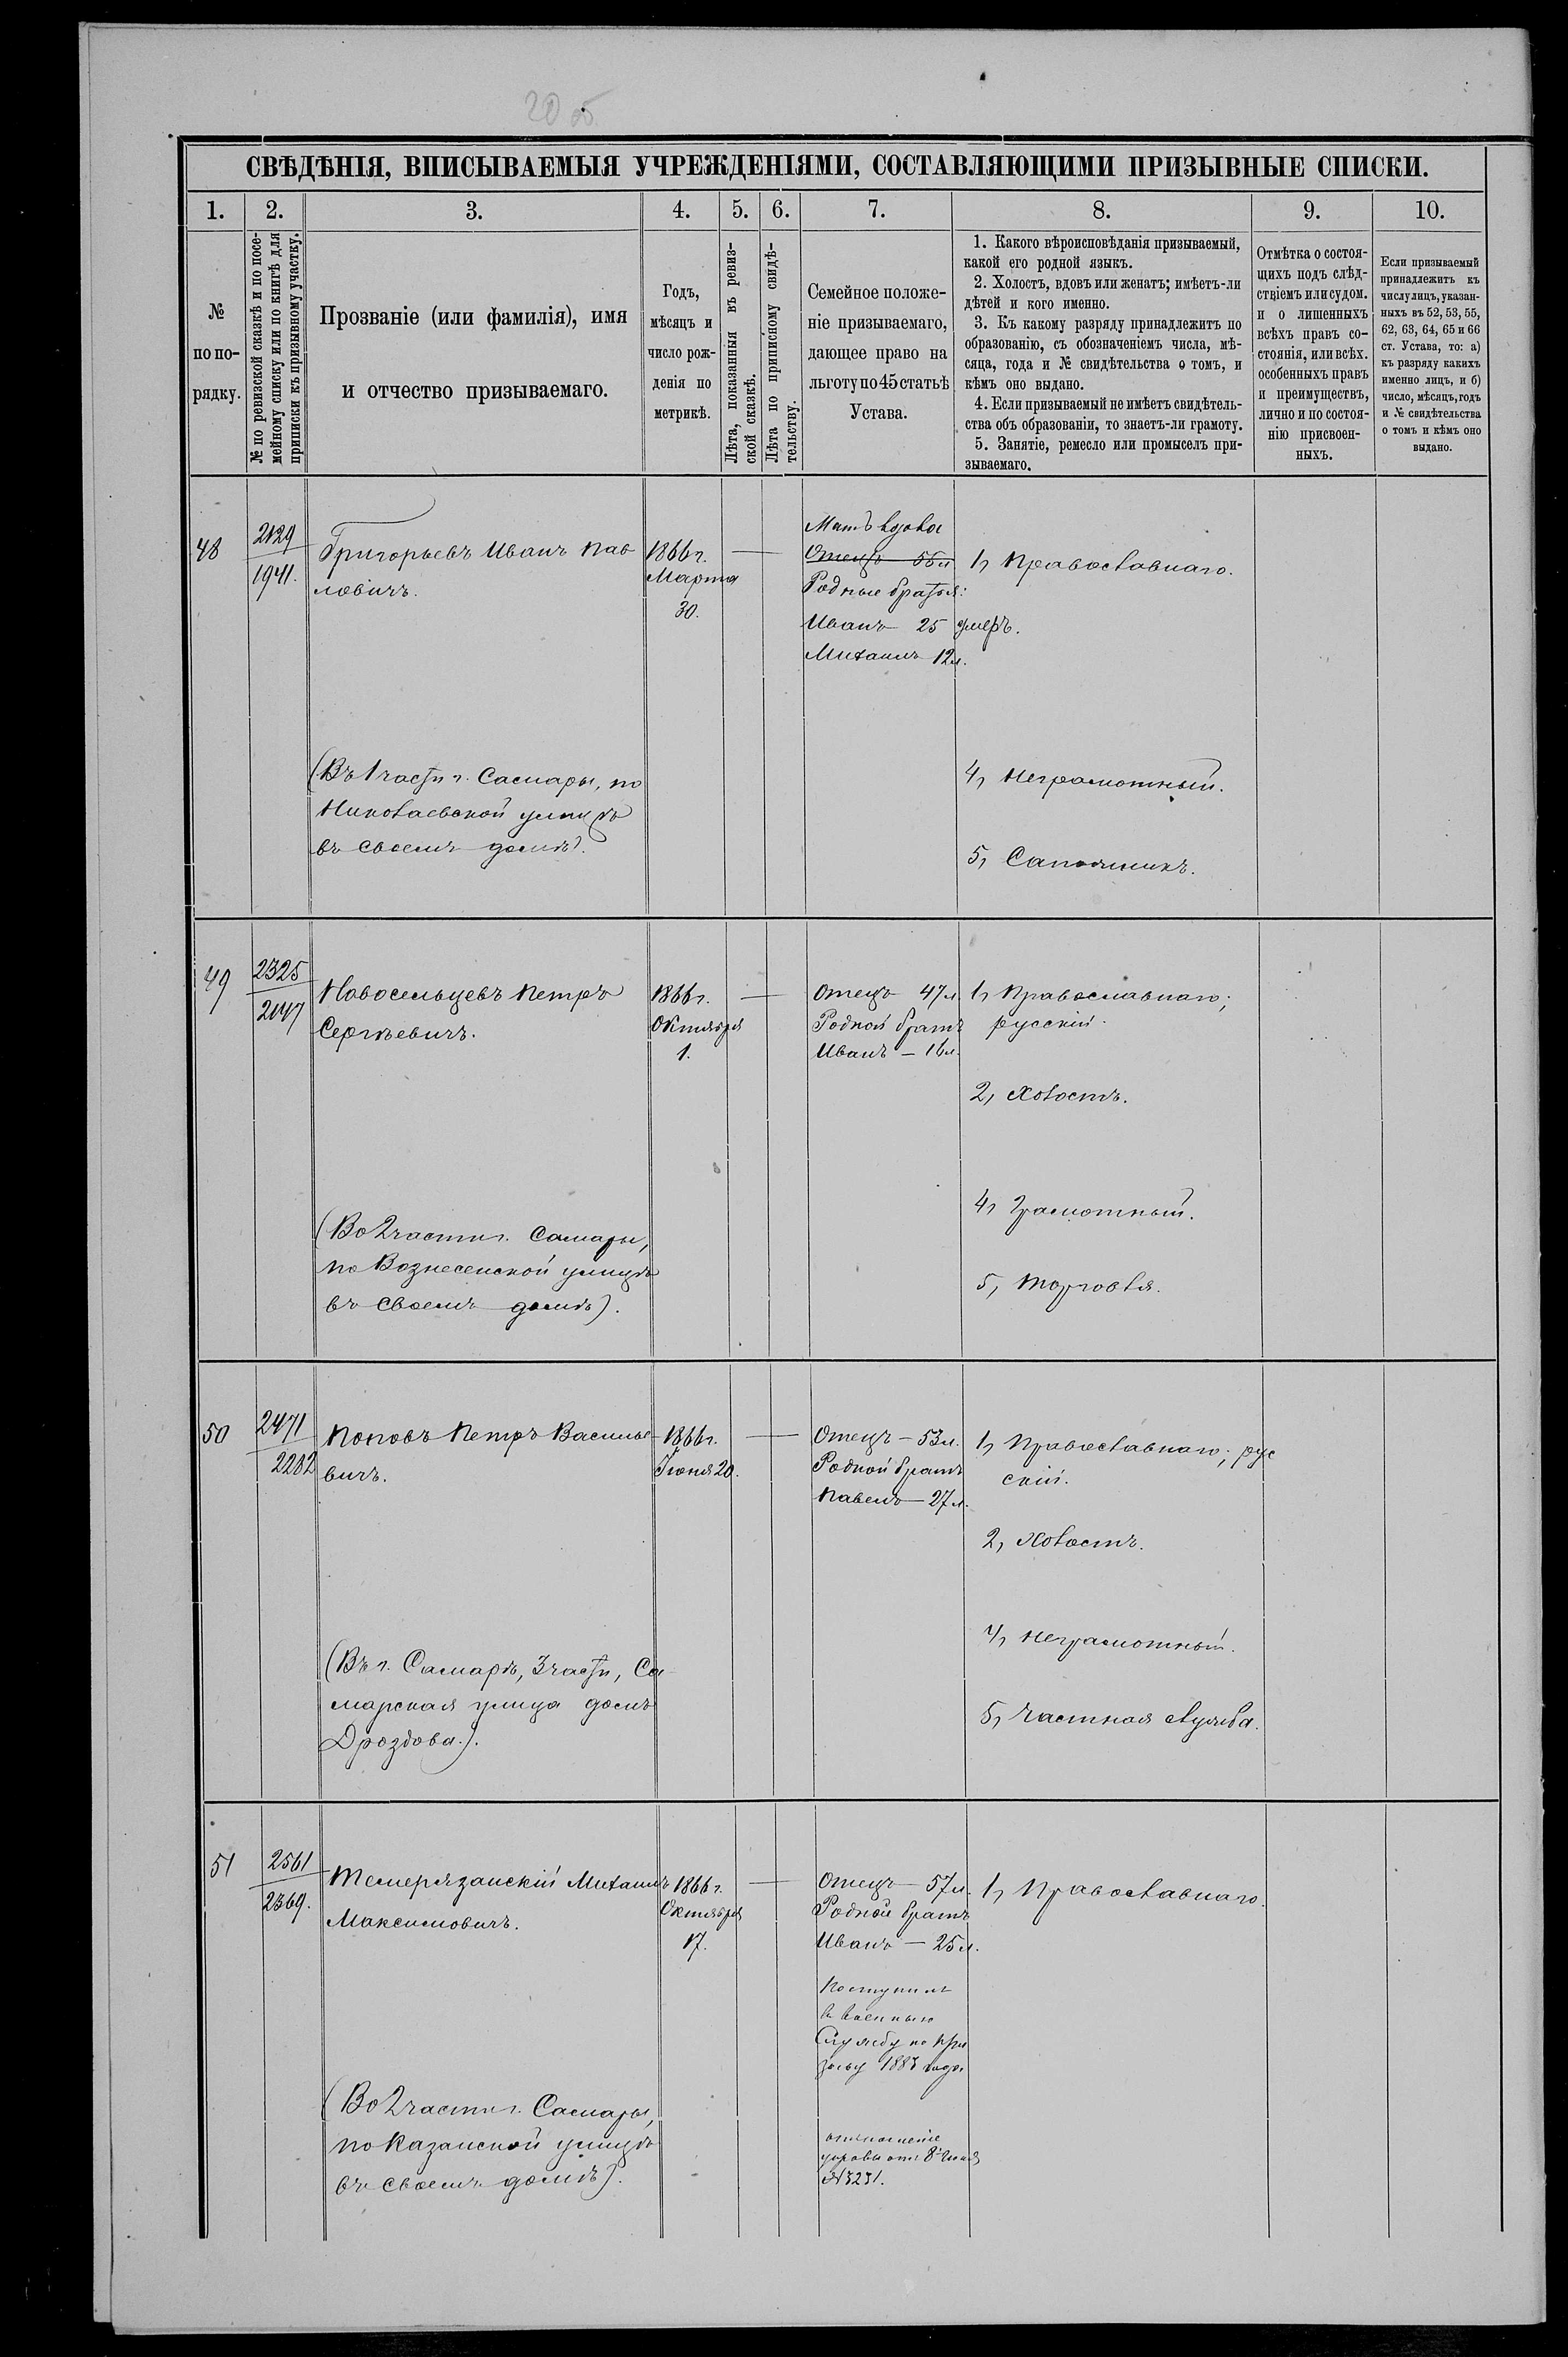 20 об.
СВѢДѢНІЯ, ВПИСЫВАЕМЫЯ УЧРЕЖДЕНІЯМИ, СОСТАВЛЯЮЩИМИ ПРИЗЫВНЫЕ СПИСКИ.
1. 2. 3. 4. 5. 6. 7. 8. 9. 10.
№
по по-
рядку.
№ по ревизской сказкѣ и по посе-
мейному списку или по книгѣ для
приписки къ призывному участку.
Прозваніе (или фамилія), имя
и отчество призываемаго.
Годъ,
мѣсяцъ и
число рож-
денія по
метрикѣ.
Лѣта, показанныя въ ревиз-
ской сказкѣ.
Лѣта по приписному свидѣ-
тельству.
Семейное положе-
ніе призываемаго,
дающее право на
льготу по 45 статьѣ
Устава.
1. Какого вѣроисповѣданія призываемый,
какой его родной языкъ.
2. Холостъ, вдовъ или женатъ; имѣетъ-ли
дѣтей и кого именно.
3. Къ какому разряду принадлежитъ по
образованію, съ обозначеніемъ числа, мѣ-
сяца, года и № свидѣтельства о томъ, и
кѣмъ оно выдано.
4. Если призываемый не имѣетъ свидѣтель-
ства объ образованіи, то знаетъ-ли грамоту.
5. Занятіе, ремесло или промыселъ при-
зываемаго.
Отмѣтка о состоя-
щихъ подъ слѣд-
ствіемъ или судом.
и о лишенныхъ
всѣхъ правъ со-
стоянія, или всѣх.
особенныхъ правъ
и преимуществъ,
лично и по состоя-
нію присвоен-
ныхъ.
Если призываемый
принадлежитъ къ
числу лицъ, указан-
ныхъ въ 52, 53, 55,
62, 63, 64, 65 и 66
ст. Устава, то: а)
къ разряду какихъ
именно лицъ, и б)
число, мѣсяцъ, годъ
и № свидѣтельства
о томъ и кѣмъ оно
выдано.
48
2129
1941.
Григорьевъ Иванъ Пав
ловичъ.
(Въ 1 части г. Самары, по
Николаевской улицѣ
въ своемъ домѣ).
1866 г.
Марта
30.
Мать вдова
Отецъ 56 л
Родные братья:
Иванъ 25 умеръ.
Михаилъ 12 л.
1, Православнаго.
4, Неграмотный.
5, Сапожникъ.
49
2325
2147
Новосельцевъ Петръ
Сергѣевичъ.
(Во 2 части г. Самары,
по Вознесенской улицѣ
въ своемъ домѣ).
1866 г.
Октября
1.
Отецъ 47 л.
Родной братъ
Иванъ — 16 л.
1, Православнаго;
русскій.
2, Холостъ.
4, Грамотный.
5, Торговля.
50
2471
2282
Поповъ Петръ Василье
вичъ.
(Въ г. Самарѣ, 3 части, Са
марская улица домъ
Дроздова.).
1866 г.
Іюня 20.
Отецъ — 53 л.
Родной братъ
Павелъ — 27 л.
1, Православнаго; рус
скій.
2, Холостъ.
4, Неграмотный.
5, Частная служба.
51
2561
2369.
Темерязанскій Михаилъ
Максимовичъ.
(Во 2 части г. Самары,
по Казанской улицѣ
въ своемъ домѣ).
1866 г.
Октября
17.
Отецъ — 57 л.
Родной братъ
Иванъ — 25 л.
Поступилъ
въ военную
Службу по при
зыву 1883 года
отношеніе
управы отъ 8
№ 3231.
1, Православнаго.